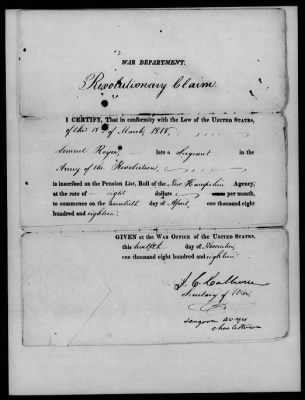 WAR DEPARTMENT.
Revolutionary Claim.
I CERTIFY, That in conformity with the Law of the UNITED STATES,
of the 18th of March, 1818,
Samuel Royce, late a Sergeant in the
Army of the Revolution,
is inscribed on the Pension List, Roll of the New Hampshire Agency,
at the rate of eight dollars per month,
to commence on the twentieth day of April, one thousand eight
hundred and eighteen.
GIVEN at the WAR OFFICE of the UNITED STATES,
this twelfth day of November,
one thousand eight hundred and eighteen.
J. C. Calhoun
Secretary of War
Charlestown